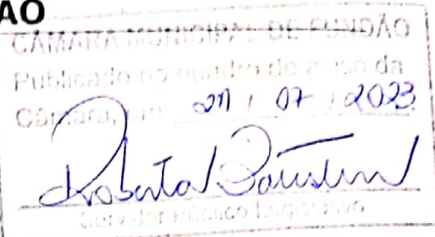 ÃO
CÂMARA MUNICIPAL DE FUNDÃO
Publicado no quadro de aviso da
Câmara, em / 07 / 2023
Roberta
Servidor Público Legislativo